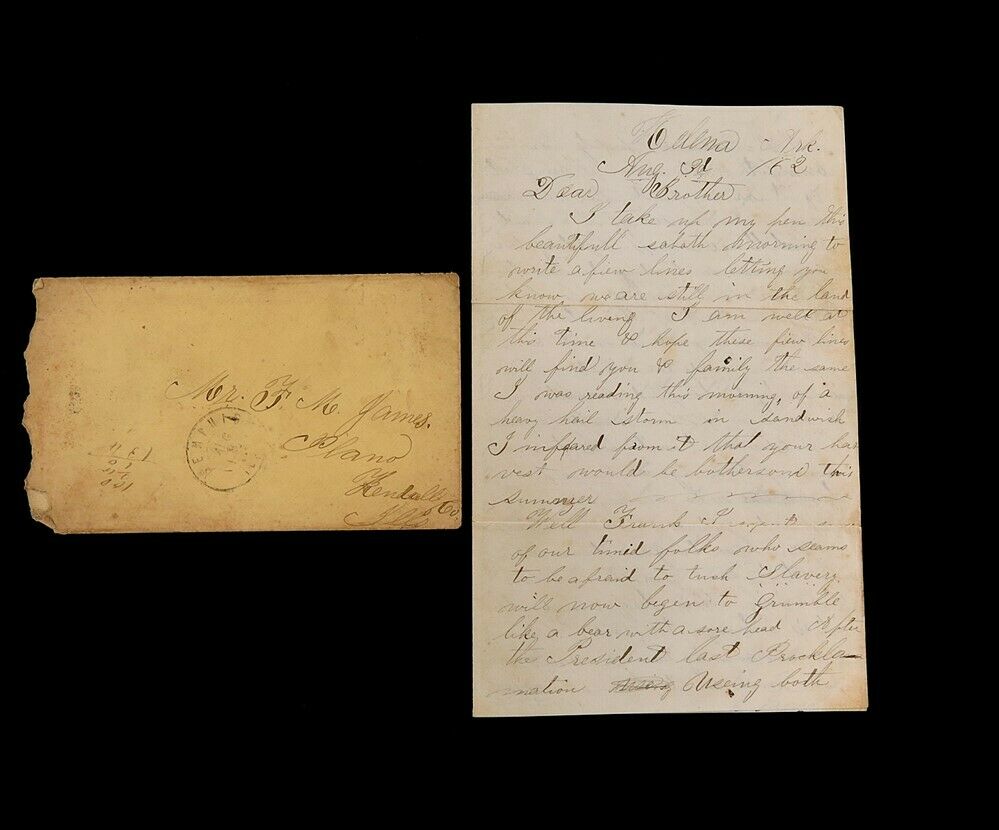 Mr. F. M. James.
Plano
Kendall Co
Ills
MEMPHIS
Helena Ark.
Aug. 3d /62
Dear Brother
I take up my pen this
beautifull sabath morning to
write a fiew lines letting you
know we are still in the land
of the living I am well at
this time & hope these fiew lines
will find you & family the same
I was reading this morning, of a
heavy hail storm in sandwich
I infeared from it that your har
vest would be bothersome this
summer
Well Frank I
of our timid folks who seams
to be afraid to tuch Slavery
will now begen to Grumble
like a bear with a sore head After
the President last Prockla-
mation Useing both